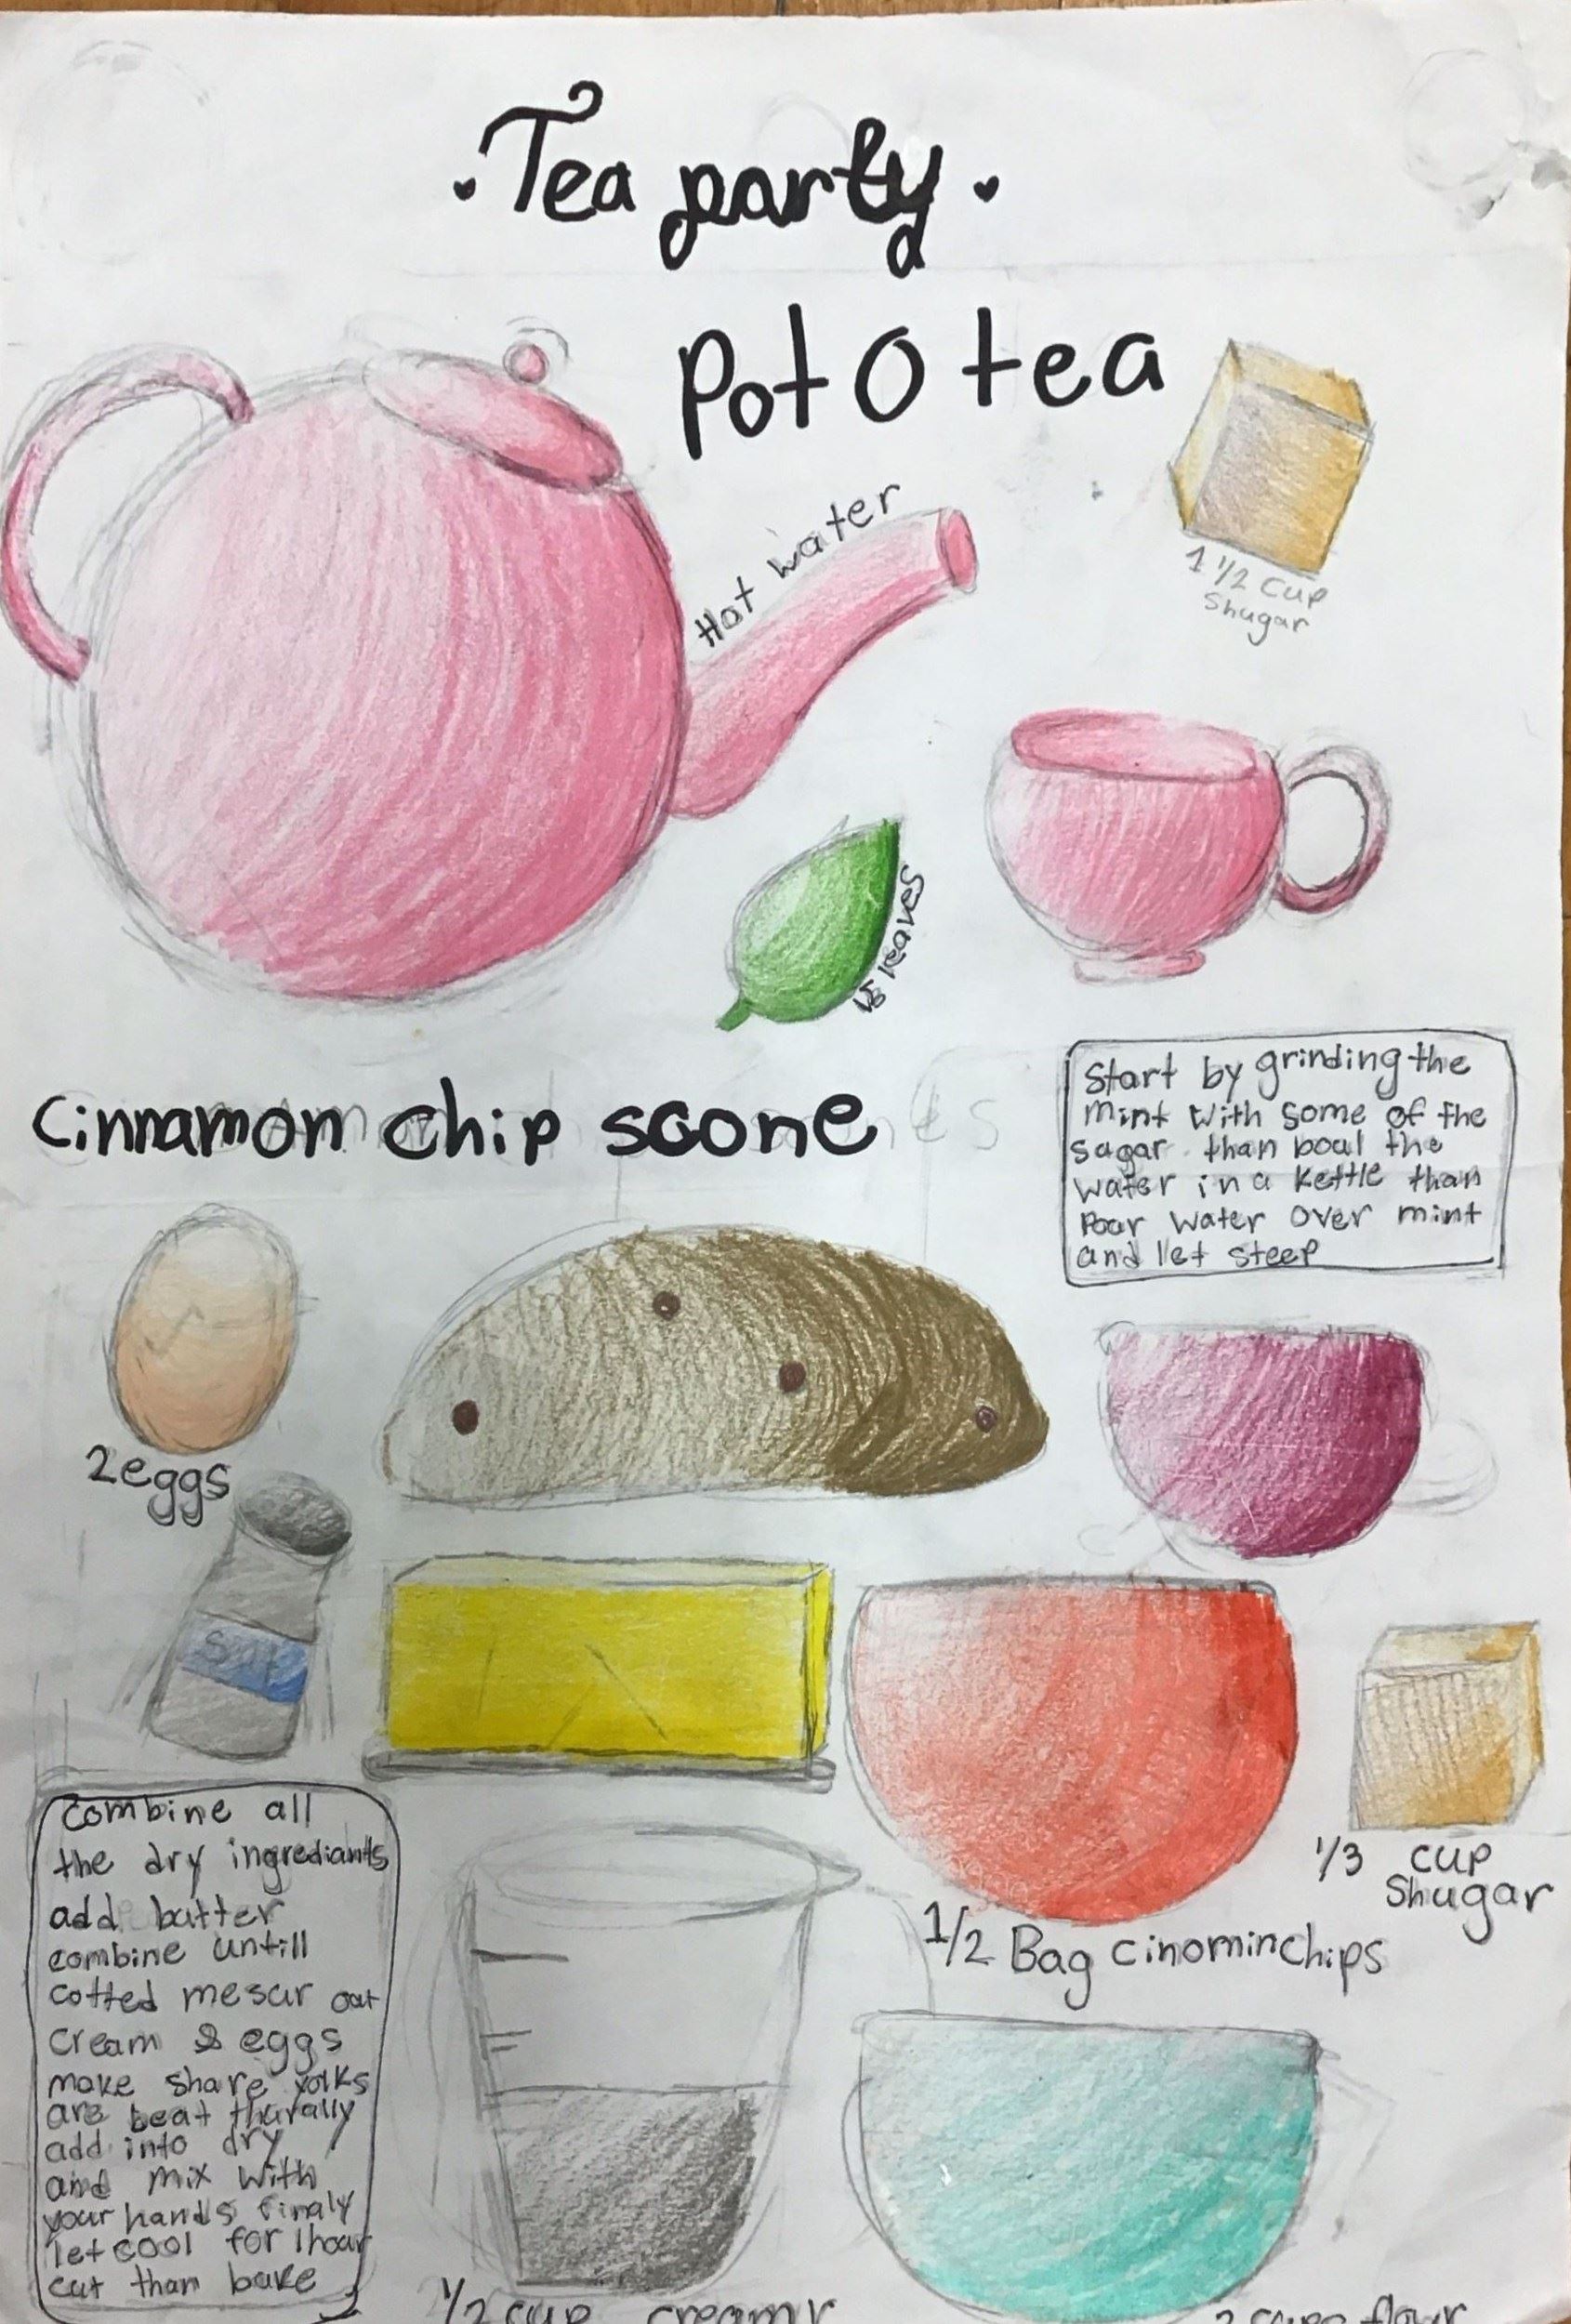 Tea party
Pot O tea
Hot water
1 1/2 cup
Shugar
15 leaves
Start by grinding the
mint with some of the
sugar than boul the
water in a kettle than
Pour water over mint
and let steep
Cinnamon chip scone
2 eggs
Salt
1/3 cup
Shugar
1/2 Bag cinominchips
Combine all
the dry ingrediants
add butter
combine untill
cotted mesur out
cream & eggs
make share yolks
are beat thurally
add into dry
and mix with
your hands finaly
let cool for 1 hour
cut than bake
1/2 cup creamr
2 cups flour